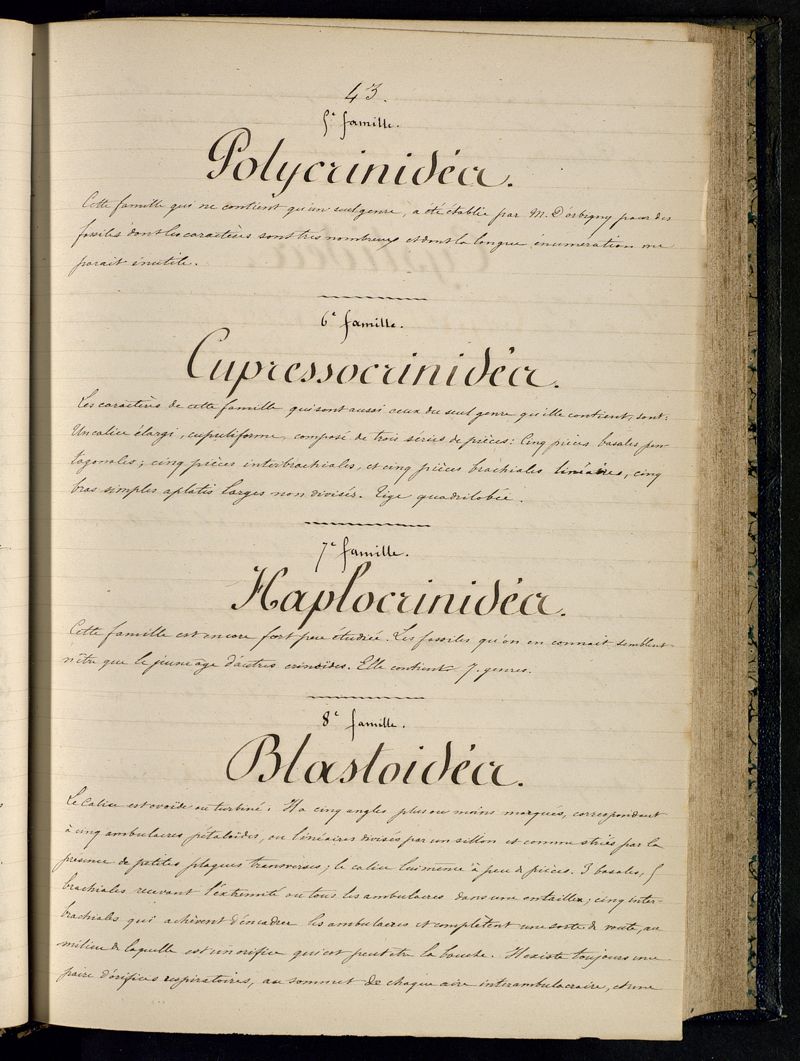 43.
5.e famille.
Polycrinidéa.
Cette famille qui ne contient qu'un seul genre, a été établie par M. D'orbigny pour des
fossiles dont les caractères sont très nombreux et dont la longue énumération me
parait inutile.
6e famille.
Cupressocrinidéa.
Les caractères de cette famille qui sont aussi ceux du seul genre qu'elle contient, sont:
Un calice élargi, cupuliforme, composé de trois séries de pièces: Cinq pièces basales pen-
tagonales; cinq pièces interbrachiales, et cinq pièces brachiales linéaires, cinq
bras simples aplatis larges non divisés. Tige quadrilobée.
7e famille.
Haplocrinidéa.
Cette famille est encore fort peu étudiée. Les fossiles qu'on en connait semblent
n'être que le jeune âge d'autres crinoides. Elle contient 7. genres.
8e famille.
Blastoidéa.
Le Calice est ovoide ou turbiné; Il a cinq angles plus ou moins marqués, correspondant
à cinq ambulacres pétaloïdes, ou linéaires divisés par un sillon et comme striés par la
présence de petites plaques transverses; le calice lui même à peu de pièces. 3 basales, 5
brachiales recevant l'extrémité ou tous les ambulacres dans une entaille; cinq inter-
brachiales qui achèvent d'encadrer les ambulacres et complètent une sorte de voute, au
milieu de laquelle est un orifice qui est peut etre la bouche. Il existe toujours une
paire d'orifices respiratoires, au sommet de chaque aire interambulacraire, et une